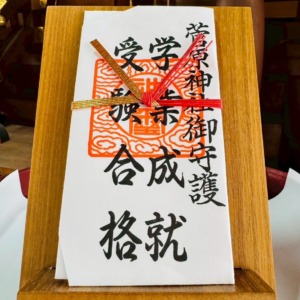 菅原神社御守護
学業成就
受験合格